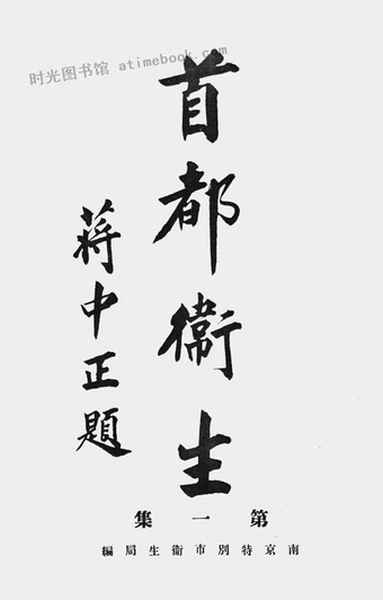 时光图书馆 atimebook.com
首都衛生
蔣中正題
第一集
南京特別市衛生局編